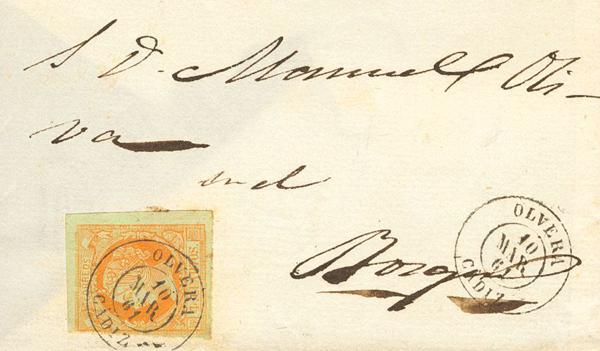 S D. Manuel Oli-
va
en el
Borge
OLVERA
10
MAR
61
CADIZ
OLVERA
10
MAR
61
CADIZ